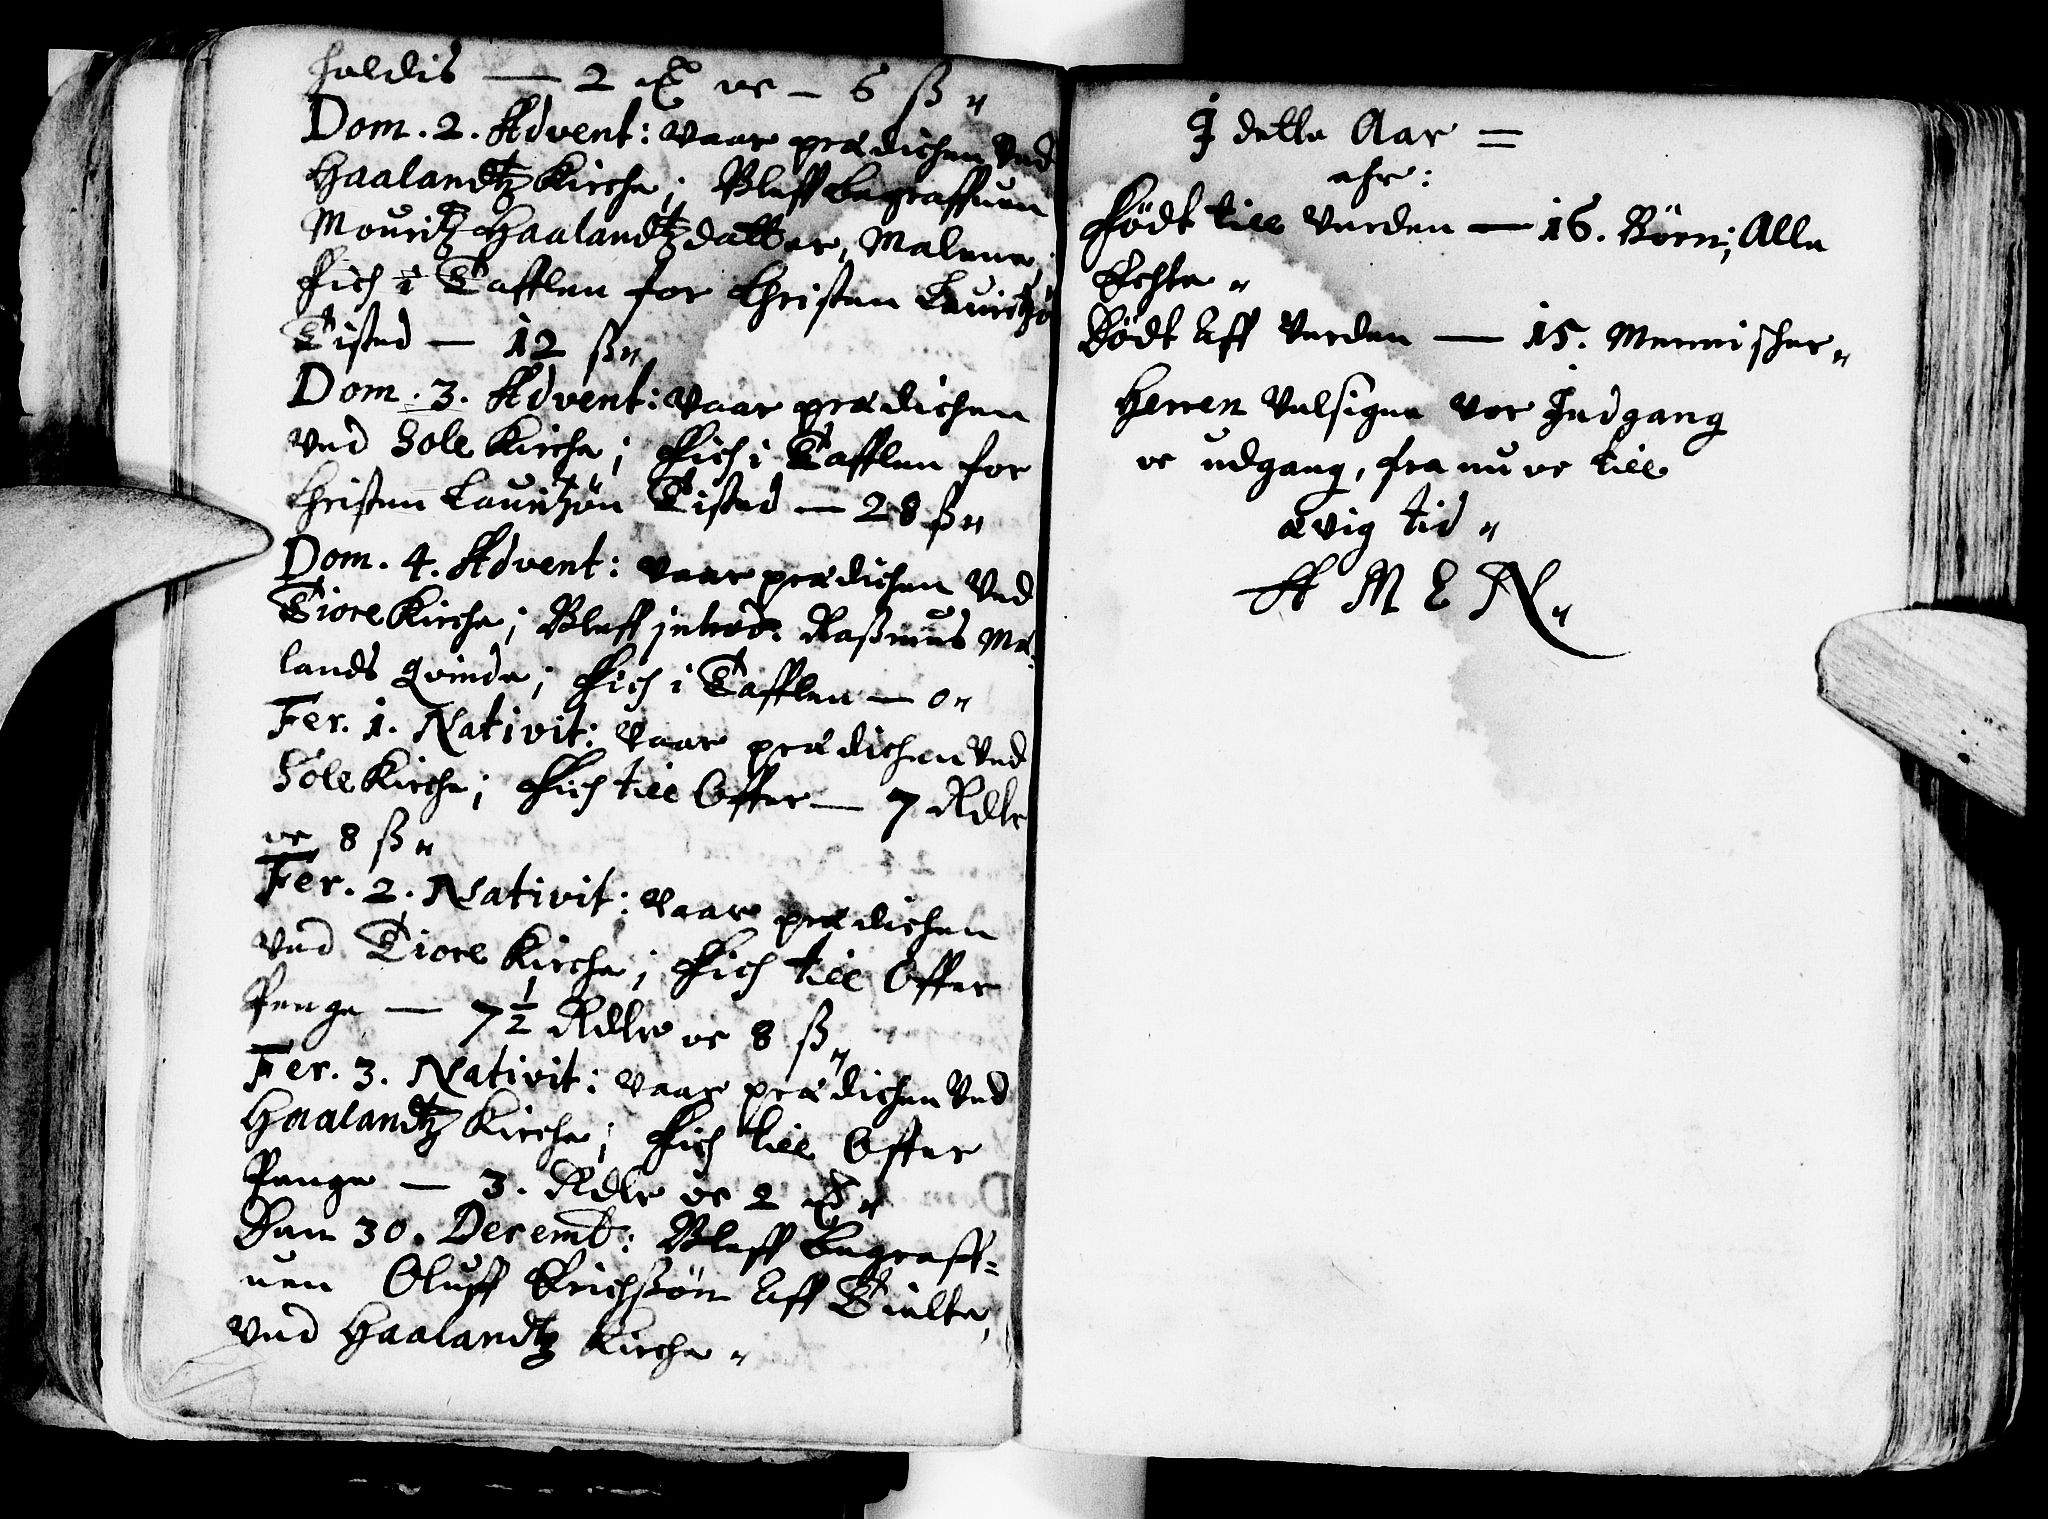 holdis — 2 oc — 6 ß
Dom. 2. Advent: vaar prædichen ved
Haalandtz Kirche; Bleff begraffuen
Mouritz Haalandtz datter, Malene,
Fich i Tafflen for Christen Lauritzøn
Tisted — 12 ß
Dom. 3. Advent: vaar prædichen
ved Sole Kirche; Fich i Tafflen for
Christen Lauritzøn Tisted — 28 ß
Dom. 4. Advent: vaar prædichen ved
Tiore Kirche; Bleff introd: Raßmus Me-
lands Qvinde; Fich i Tafflen — 0
Fer. 1. Nativit: vaar prædichen ved
Sole Kirche; Fich till Offer — 7 Rdlr
oc 8 ß
Fer. 2. Nativit: vaar prædichen
ved Tiore Kirche; Fich till Offer
Penge — 7½ Rdlr oc 8 ß
Fer. 3. Nativit: vaar prædichen ved
Haalandtz Kirche; Fich till Offer
Penge — 3. Rdlr oc 2
Den 30. Decemb: Bleff begraff=
uen Oluff Erichßøn aff Tielte,
ved Haalandtz Kirche
I dette Aar =
ehr:
Født till verden — 16. Börn; Alle
Echte
Dödt aff verden — 15. Mennischer
Herren velsigne vor Indgang
oc udgang, fra nu oc till
ævig tid
AMEN